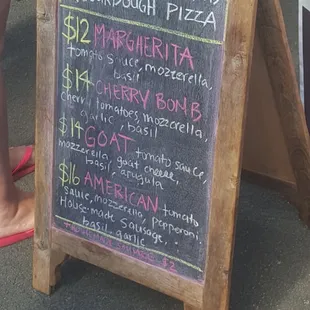 SOURDOUGH PIZZA
$12 MARGHERITA
tomato sauce, mozzarella,
basil
$14 CHERRY BOMB
cherry tomatoes, mozzarella,
garlic, basil
$14 GOAT tomato sauce,
mozzarella, goat cheese,
basil, arugula
$16 AMERICAN tomato
sauce, mozzarella,
House-made sausage, pepperoni,
basil, garlic
$2